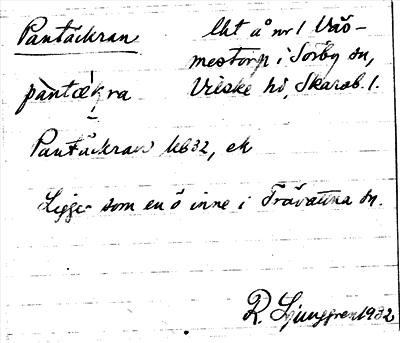 Pantäckran
lht å nr 1 Väs-
mestorp i Sörby sn,
Vilske hd, Skarab. l.
pàntækra
Pantäckran UB32, ek
Ligger som en ö inne i Trävattna sn.
R. Ljunggren 1932